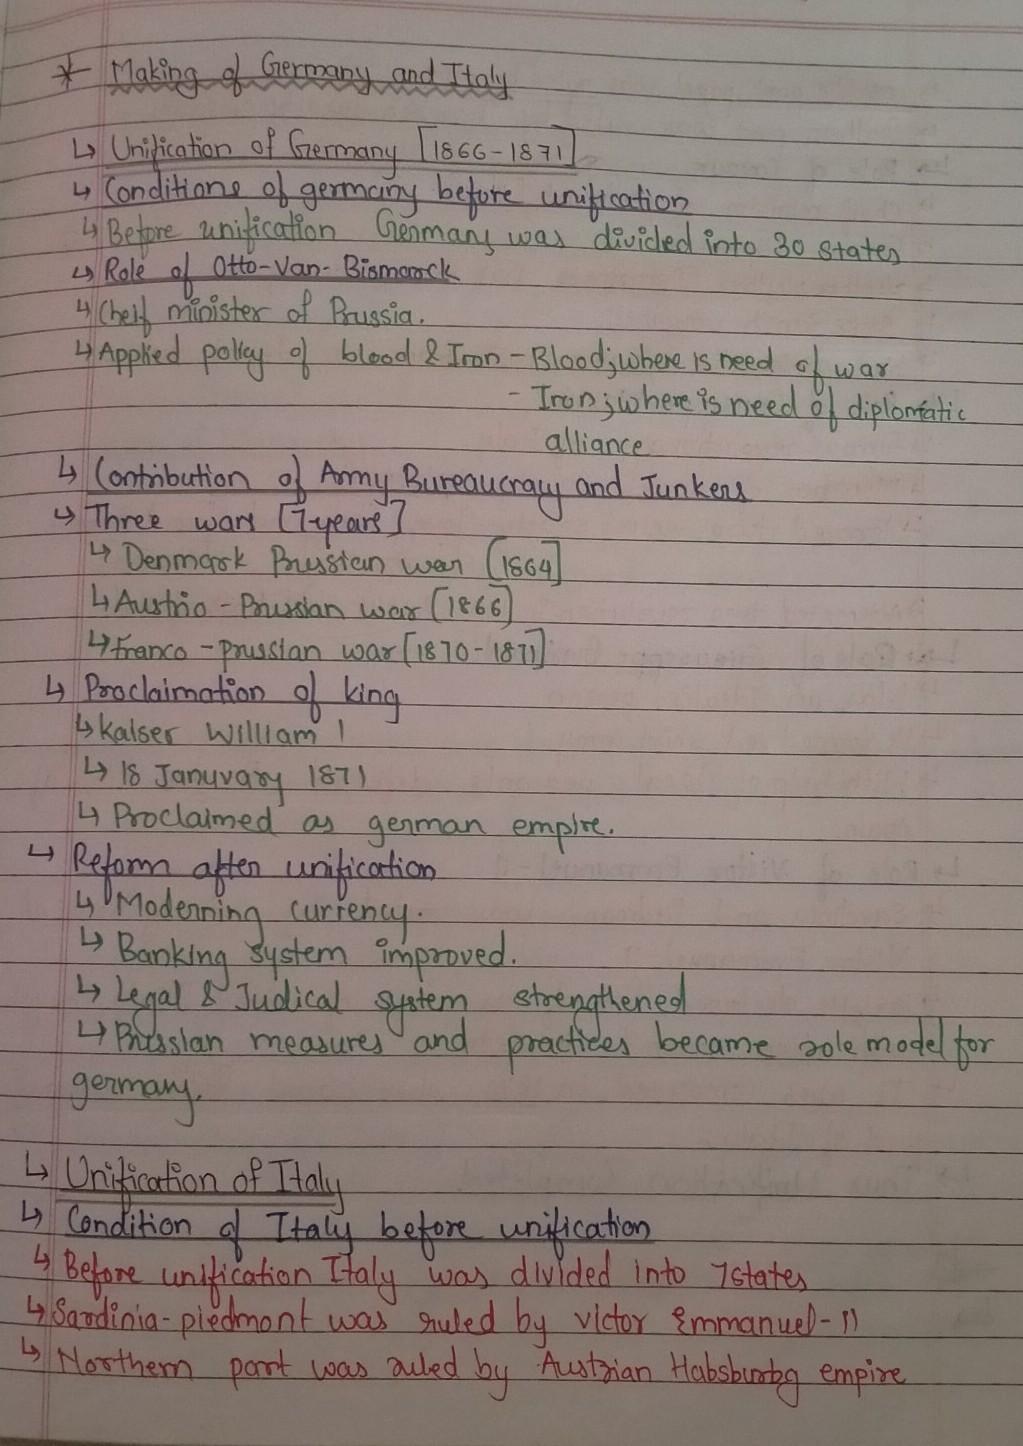 * Making of Germany and Italy
↳ Unification of Germany [1866-1871]
↳ Conditions of germany before unification
↳ Before unification Germany was divided into 30 states
↳ Role of Otto-Van-Bismarck
↳ Cheif minister of Prussia.
↳ Applied policy of blood & Iron - Blood; where is need of war
- Iron; where is need of diplomatic
alliance
↳ Contribution of Army Bureaucracy and Junkers
↳ Three wars [7-years]
↳ Denmark Prussian war [1864]
↳ Austrio - Prussian war [1866]
↳ Franco - prussian war [1870-1871]
↳ Proclaimation of king
↳ Kaiser William I
↳ 18 Januvary 1871
↳ Proclaimed as german empire.
↳ Reform after unification
↳ Moderning currency.
↳ Banking system improved.
↳ Legal & Judical system strengthened
↳ Prussian measures and practices became role model for
germany.
↳ Unification of Italy
↳ Condition of Italy before unification
↳ Before unification Italy was divided into 7 states
↳ Sardinia-piedmont was ruled by victor Emmanuel-II
↳ Northern part was ruled by Austrian Habsburbg empire